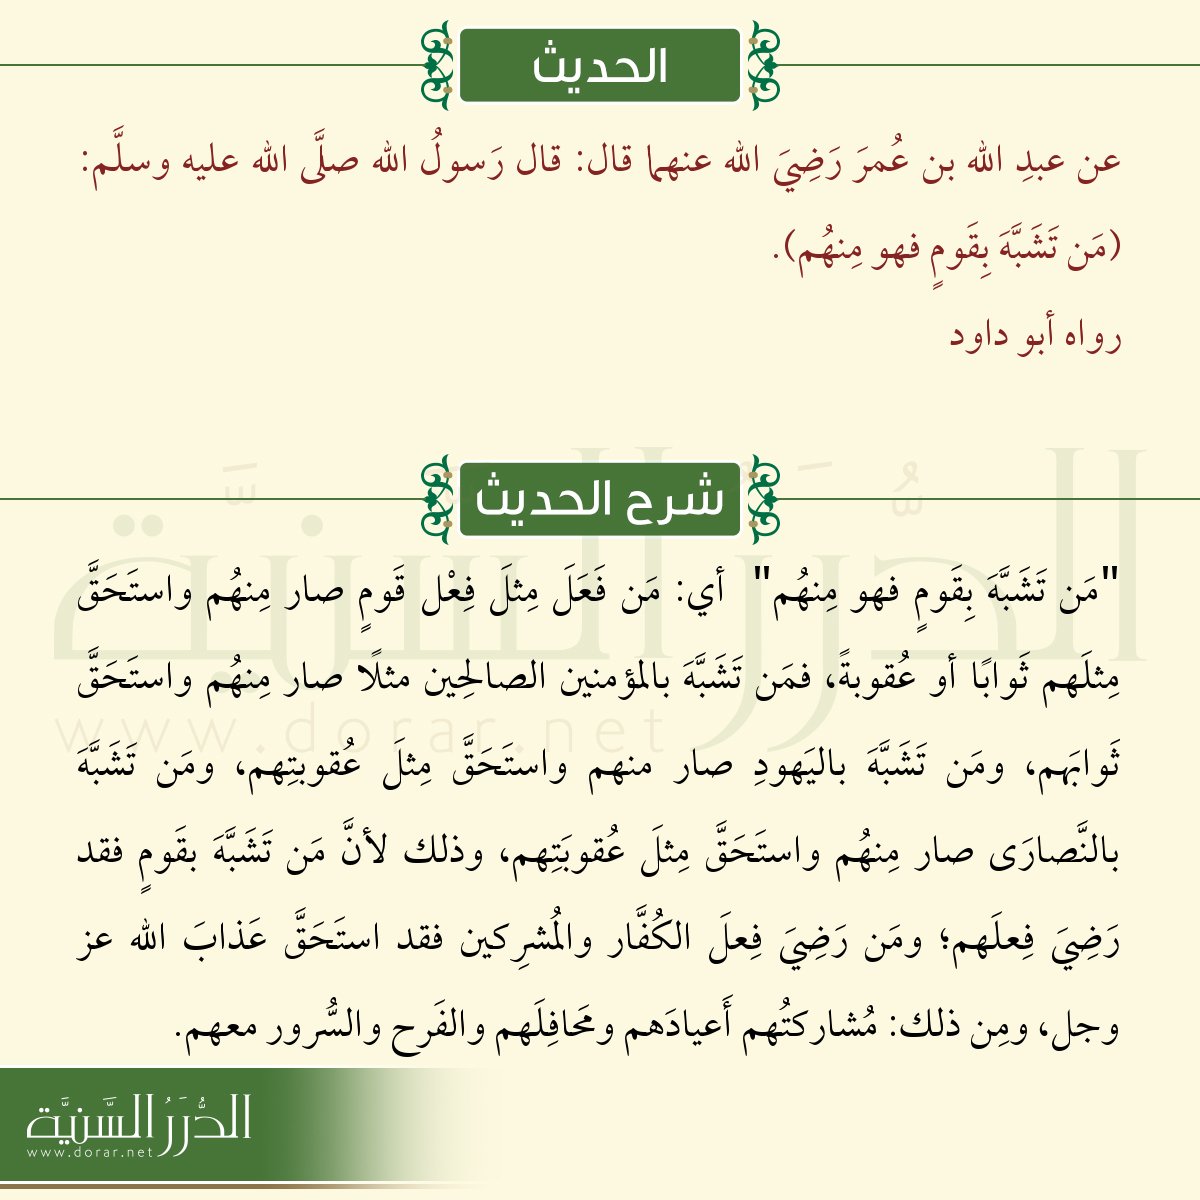 الحديث
عن عبدِ الله بن عُمرَ رَضِيَ الله عنهما قال: قال رَسولُ الله صلَّى الله عليه وسلَّم:
(مَن تَشَبَّهَ بِقَومٍ فهو مِنهُم).
رواه أبو داود
شرح الحديث
"مَن تَشَبَّهَ بِقَومٍ فهو مِنهُم" أي: مَن فَعَلَ مِثلَ فِعْل قَومٍ صار مِنهُم واستَحَقَّ
مِثلَهم ثَوابًا أو عُقوبةً، فمَن تَشَبَّهَ بالمؤمنين الصالحِين مثلًا صار مِنهُم واستَحَقَّ
ثَوابَهم، ومَن تَشَبَّهَ باليَهودِ صار منهم واستَحَقَّ مِثلَ عُقوبتِهم، ومَن تَشَبَّهَ
بالنَّصارَى صار مِنهُم واستَحَقَّ مِثلَ عُقوبَتِهم، وذلك لأنَّ مَن تَشَبَّهَ بقَومٍ فقد
رَضِيَ فِعلَهم؛ ومَن رَضِيَ فِعلَ الكُفَّار والمُشرِكين فقد استَحَقَّ عَذابَ الله عز
وجل، ومِن ذلك: مُشاركتُهم أَعيادَهم ومحَافِلَهم والفَرح والسُّرور معهم.
الدُّرَرُ السَّنيَّة
www.dorar.net
الدُّرَرُ السَّنيَّة
www.dorar.net